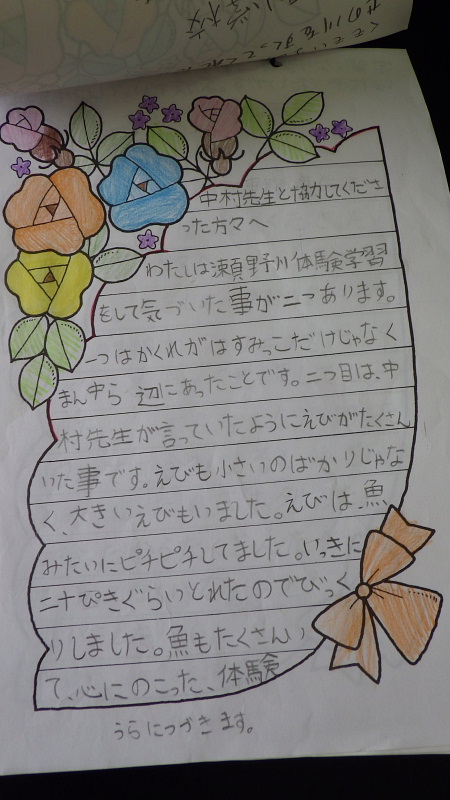 中村先生と協力してくださ
った方々へ
わたしは瀬野川体験学習
をして気づいた事が二つあります。
一つはかくれがはすみっこだけじゃなく
まん中ら辺にあったことです。二つ目は、中
村先生が言っていたようにえびがたくさん
いた事です。えびも小さいのばかりじゃな
く、大きいえびもいました。えびは、魚
みたいにピチピチしてました。いっきに
二十ぴきぐらいとれたのでびっく
りしました。魚もたくさんい
て、心にのこった、体験
うらにつづきます。